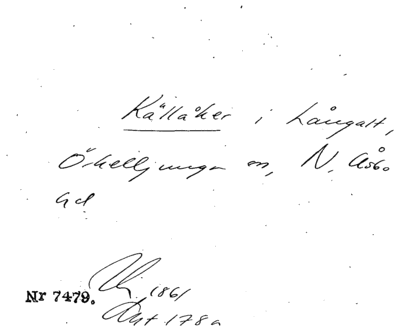 Källåker i Långalt,
Örkelljunga sn, N. Åsbo
hd
Nr 7479.
1861
Akt 178a